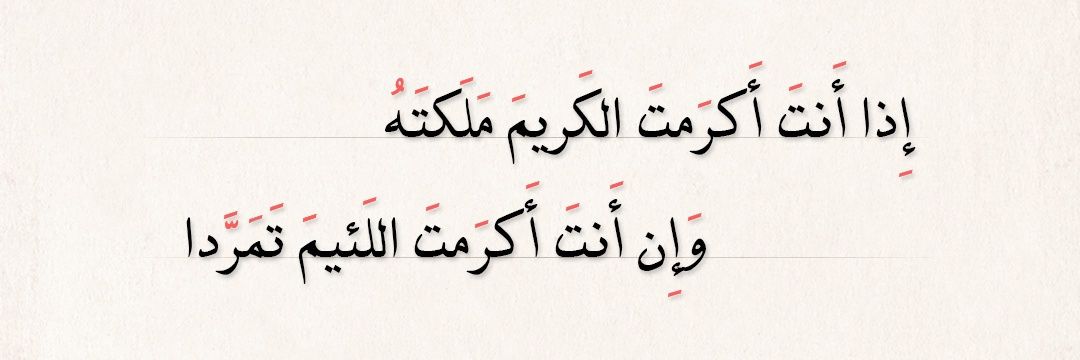 إِذا أَنتَ أَكرَمتَ الكَريمَ مَلَكتَهُ
وَإِن أَنتَ أَكرَمتَ اللَئيمَ تَمَرَّدا